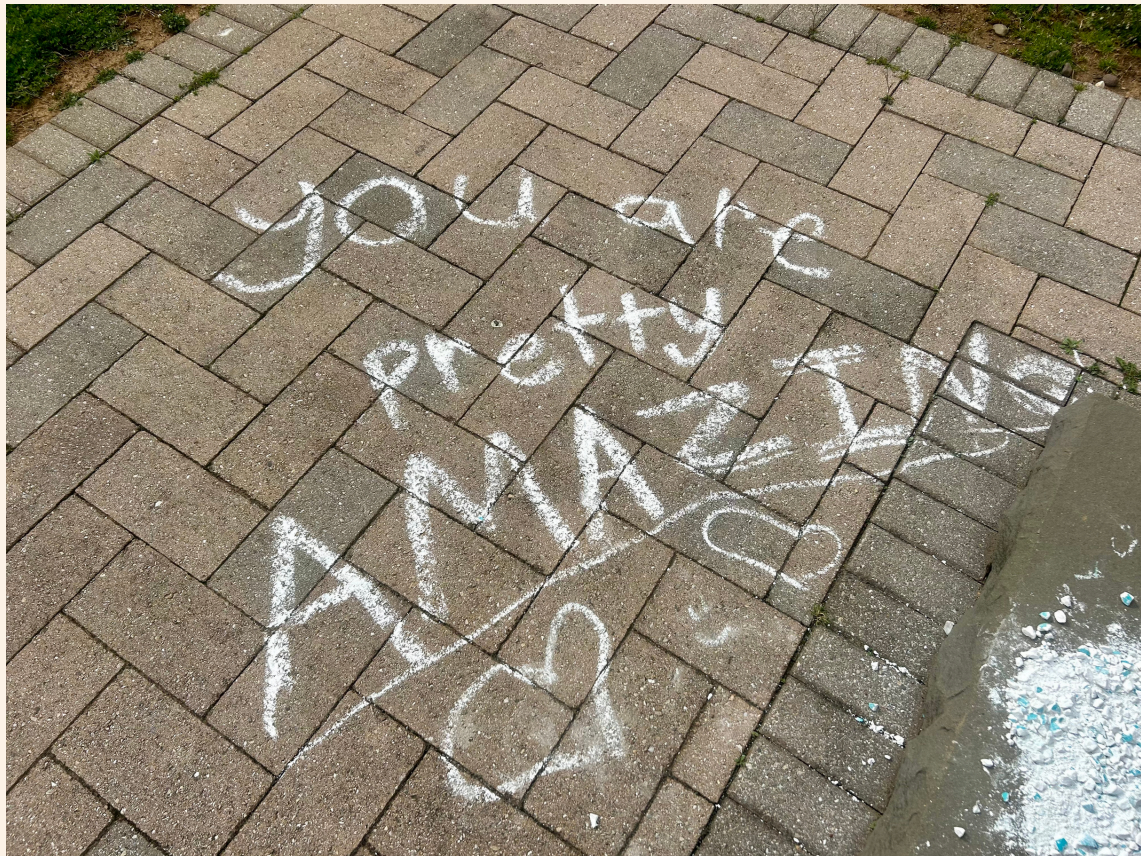 you are
pretty
AMAZING